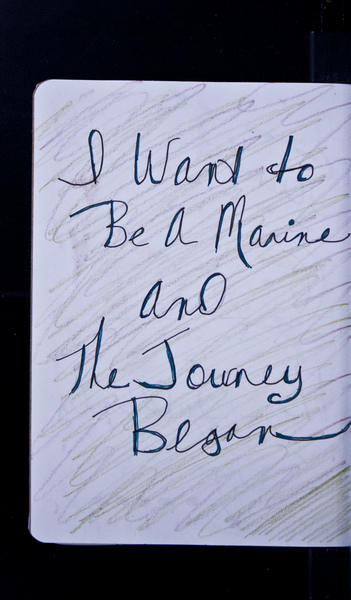 I Want to
Be A Marine
and
The Journey
Began